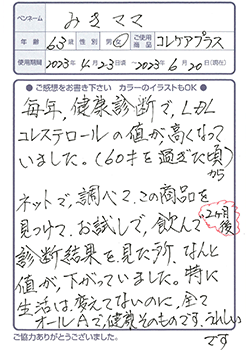 ペンネーム みきママ
年齢 63歳 性別 男・女 ご使用商品 コレケアプラス
使用期間 2023年4月23日 〜 2023年6月20日(現在)
●ご感想をお書き下さい カラーのイラストもOK●
毎年、健康診断で、LDL
コレステロールの値が、高くなって
いました。(60才を過ぎた頃から
ネットで、調べて、この商品を
見つけて、お試しで、飲んで 2ヶ月後
診断結果を見た所、なんと
値が、下がっていました。特に
生活は、変えてないのに、全て
オールAで、健康そのものです。うれしい
です
ご協力ありがとうございました。